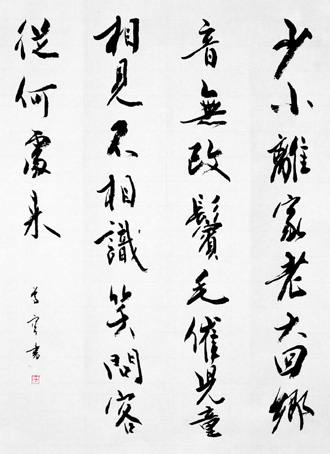 少小離家老大回鄉
音無改鬢毛催児童
相見不相識笑問客
從何處来
書